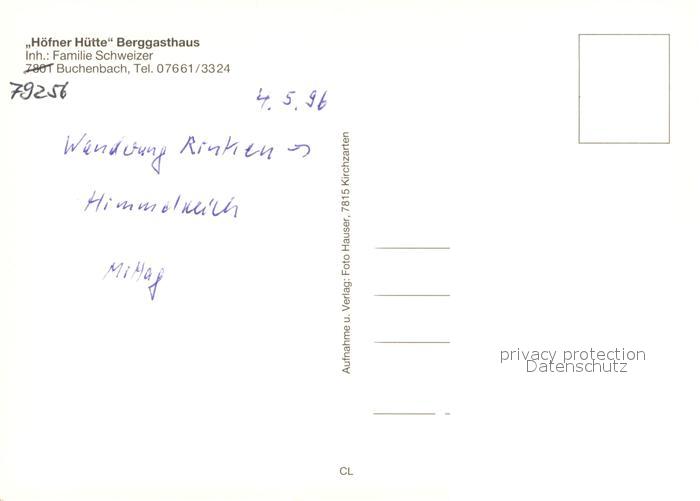 „Höfner Hütte“ Berggasthaus
Inh.: Familie Schweizer
7801 Buchenbach, Tel. 07661/3324
79256
4.5.96
Wanderung Rinken →
Himmelreich
Mittag
Aufnahme u. Verlag: Foto Hauser, 7815 Kirchzarten
privacy protection
Datenschutz
CL